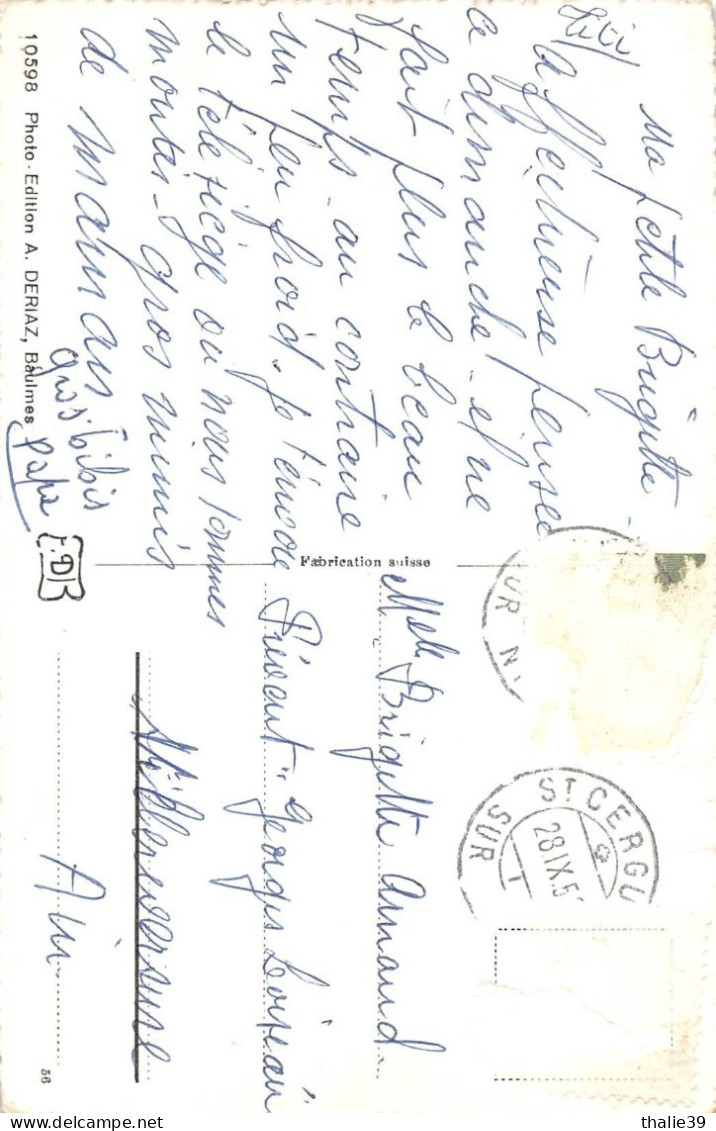 Ma petite Brigitte
Affectueuse pensée
ce dimanche - il ne
fait plus le beau
temps - au contraire
un peu froid. Je t'envoie
le télésiège où nous sommes
montés - gros mimis
de maman
gros bibis
papa
Fabrication suisse
Melle Brigitte Amand
Prévent "Georges Loiseau"
Ain
ST CERGU
SUR
28.IX.5
UR N
10598 Photo-Edition A. DERIAZ, Baulmes
A.D
56
thalie39